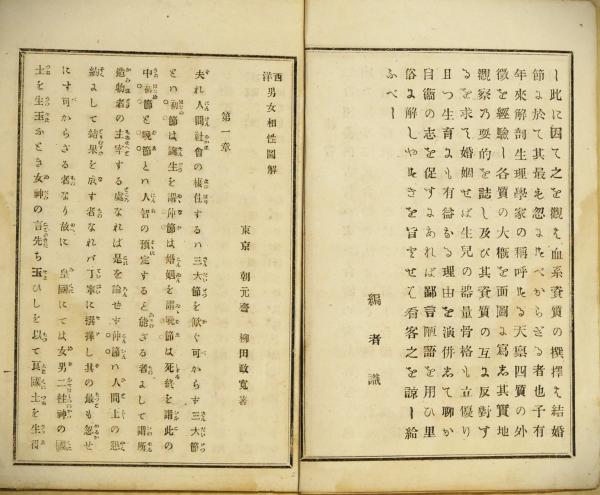 し此に因て之を觀れ血系資質の撰擇ハ結婚
節ょ於て其最も忽ょすべからざる者也予有
年來解剖生理學家の稱呼する天禀四質の外
徴を經驗し各質の大概を面圖ょ寫し其實地
觀察乃要的を誌し及び其資質の互ょ反對す
るを求て婚姻せば生兒の器量骨格も立優り
且つ生育ょも有益なる理由を演併して聊か
自衞の志を促すょあれば鄙言陋語を用ひ里
俗ょ解しやすきを旨とせり看客之を諒し給
ふべし
編者識
西洋男女相性圖解
東京 朝元齋 柳田政寛著
第一章
夫れ人間社會の棲住するハ三大節を欽ぐ可からす三大節
とハ初節は誕生を謂仲節は婚姻を謂晩節は死終を謂此の
中初節と晩節とハ人智の預定すると能ざる者よして謂所
造物者の主宰する處なれば是を論せす仲節ハ人間上の懇
納よして結果を成す者なれバ丁寧に撰擇し其の最も忽せ
にす可からざる者なり故に 皇國にては女男二柱神の國
土を生玉ふとき女神の言先ち玉ひしを以て良國土を生得